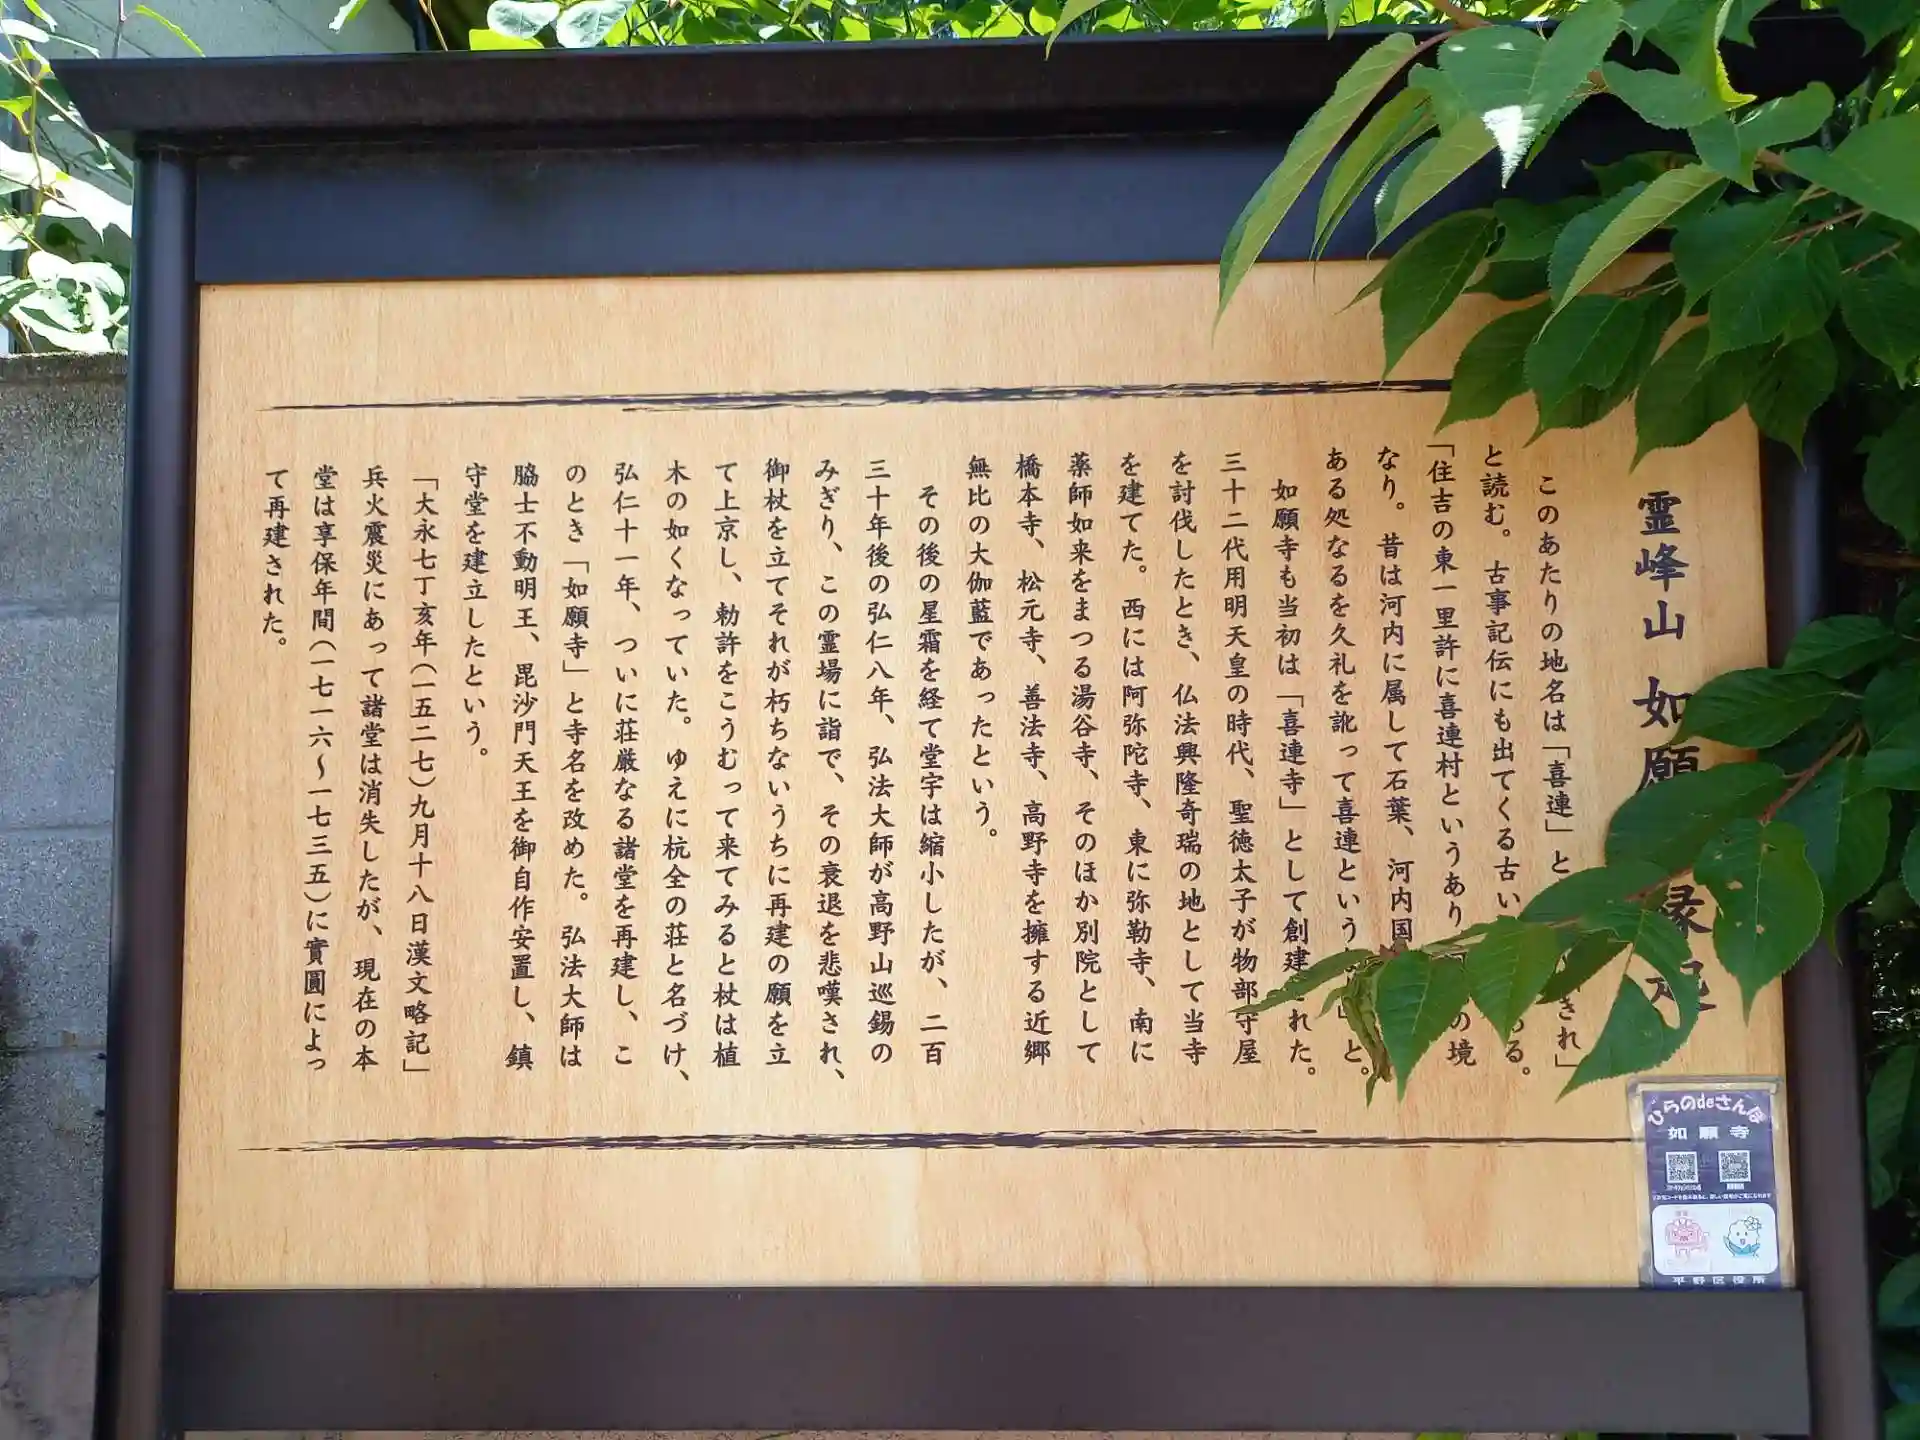 霊峰山 如願 縁起
このあたりの地名は「喜連」と きれ」
と読む。古事記伝にも出てくる古い ある。
「住吉の東一里許に喜連村というあり の境
なり。昔は河内に属して石葉、河内国
ある処なるを久礼を訛って喜連という 」と。
如願寺も当初は「喜連寺」として創建された。
三十二代用明天皇の時代、聖徳太子が物部守屋
を討伐したとき、仏法興隆奇瑞の地として当寺
を建てた。西には阿弥陀寺、東に弥勒寺、南に
薬師如来をまつる湯谷寺、そのほか別院として
橋本寺、松元寺、善法寺、高野寺を擁する近郷
無比の大伽藍であったという。
その後の星霜を経て堂宇は縮小したが、二百
三十年後の弘仁八年、弘法大師が高野山巡錫の
みぎり、この霊場に詣で、その衰退を悲嘆され、
御杖を立てそれが朽ちないうちに再建の願を立
て上京し、勅許をこうむって来てみると杖は植
木の如くなっていた。ゆえに杭全の荘と名づけ、
弘仁十一年、ついに荘厳なる諸堂を再建し、こ
のとき「如願寺」と寺名を改めた。弘法大師は
脇士不動明王、毘沙門天王を御自作安置し、鎮
守堂を建立したという。
「大永七丁亥年(一五二七)九月十八日漢文略記」
兵火震災にあって諸堂は消失したが、現在の本
堂は享保年間(一七一六〜一七三五)に實圓によっ
て再建された。
ひらのdeさんぽ
如願寺
平野区役所